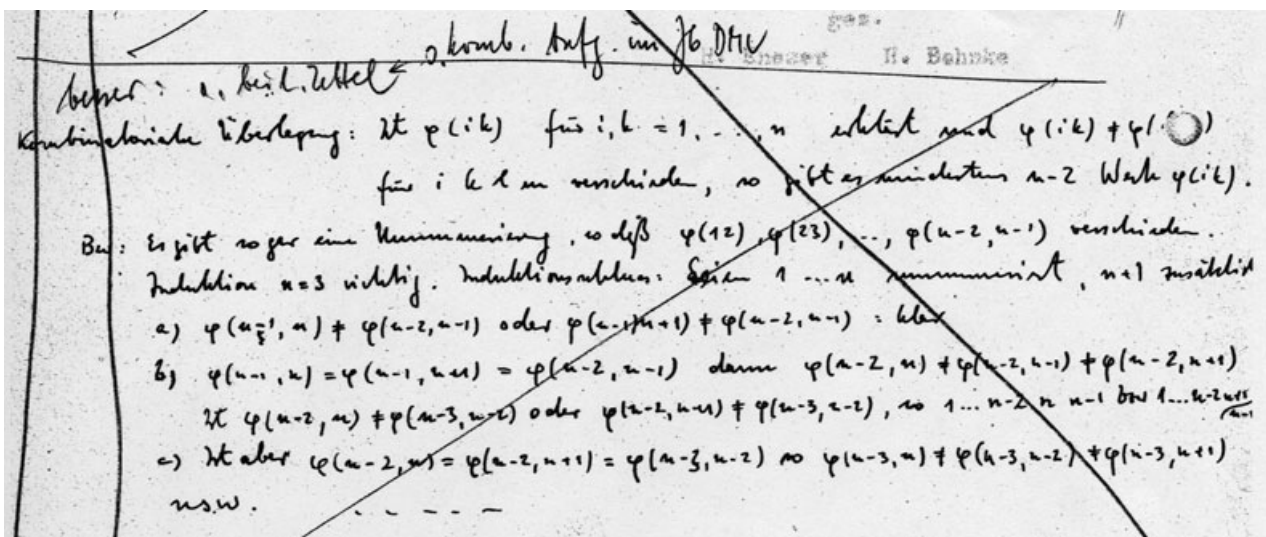 gez.
o. komb. Aufg. im Jb DMV H. Kneser H. Behnke
besser: s. beil. Zettel ←
Kombinatorische Überlegung: Ist φ(ik) für i,k = 1, ..., n erklärt und φ(ik) ≠ φ(
für i k l m verschieden, so gibt es mindestens n-2 Werte φ(ik).
Bew: Es gibt sogar eine Nummerierung, so daß φ(12), φ(23), .., φ(n-2,n-1) verschieden.
Induktion n=3 richtig. Induktionsschluss: Seien 1 ... n nummeriert, n+1 zusätzlich
a) φ(n-1,n) ≠ φ(n-2,n-1) oder φ(n-1,n+1) ≠ φ(n-2,n-1) : klar
b) φ(n-1,n) = φ(n-1,n+1) = φ(n-2,n-1) dann φ(n-2,n) ≠ φ(n-2,n-1) ≠ φ(n-2,n+1)
Ist φ(n-2,n) ≠ φ(n-3,n-2) oder φ(n-2,n+1) ≠ φ(n-3,n-2), so 1...n-2 n n-1 bzw 1...n-2 n+1 n-1
c) Ist aber φ(n-2,n) = φ(n-2,n+1) = φ(n-3,n-2) so φ(n-3,n) ≠ φ(n-3,n-2) ≠ φ(n-3,n+1)
usw. - - - - -